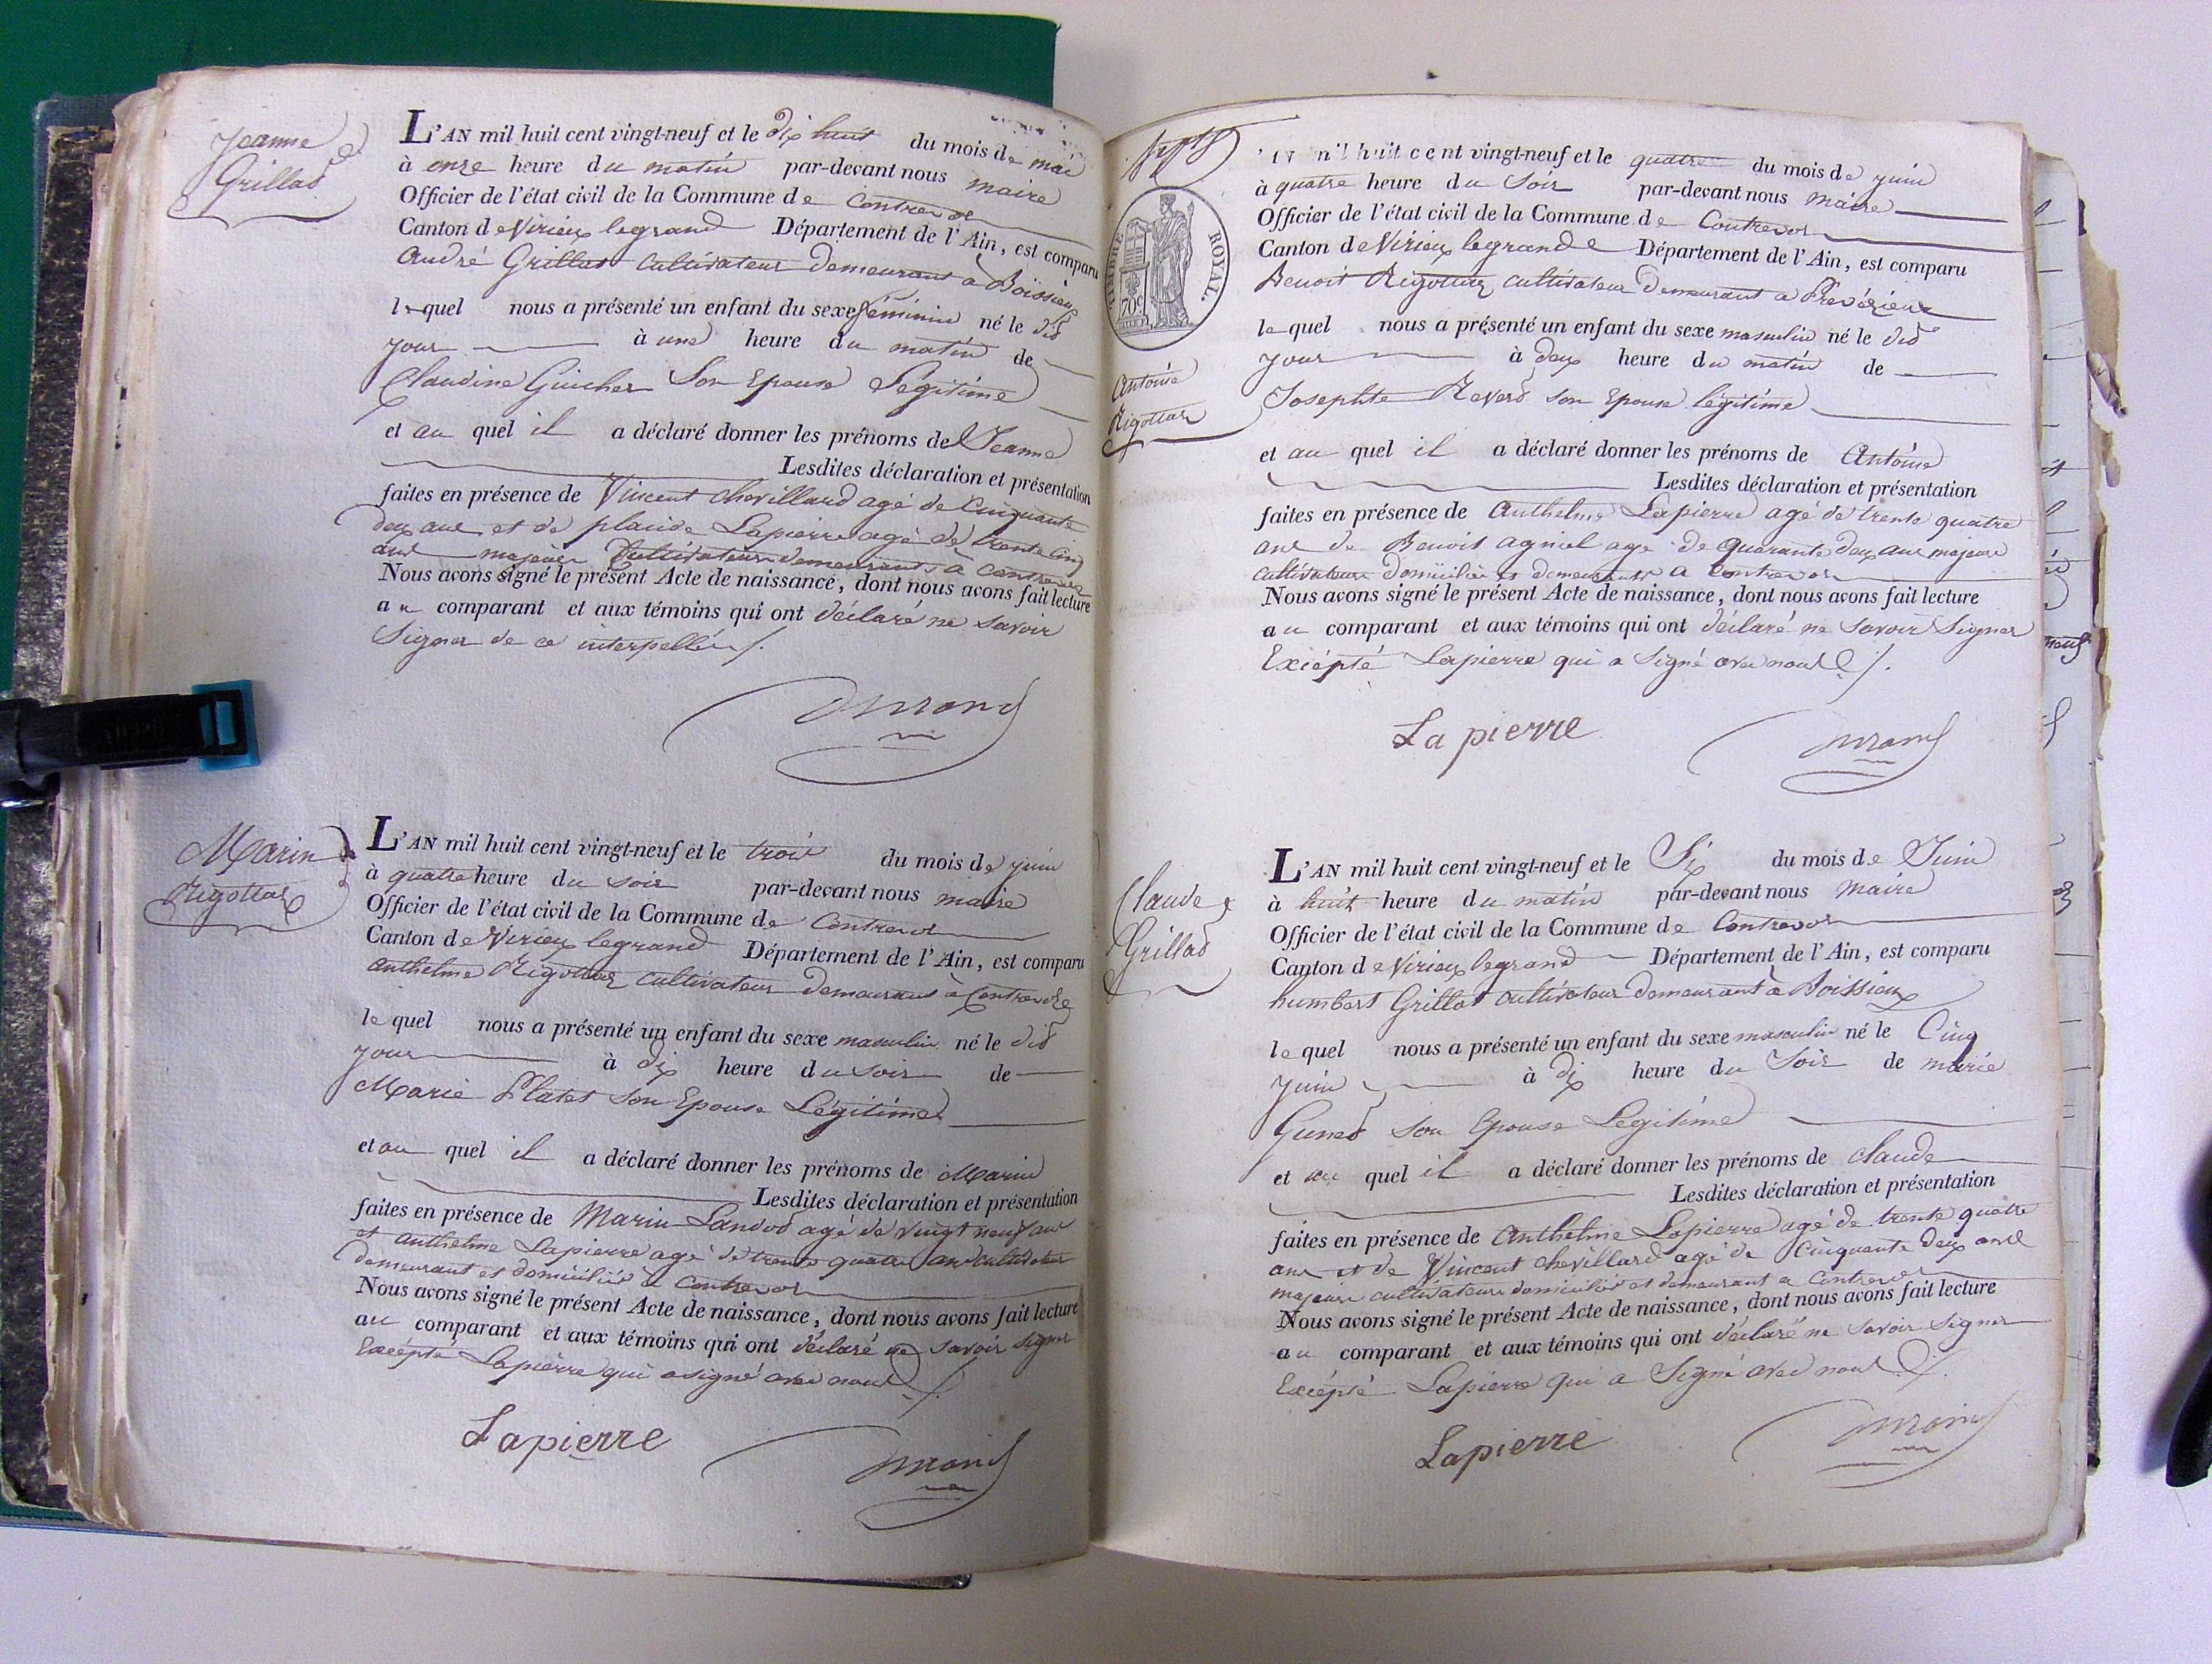 Jeanne
Grillat
L'AN mil huit cent vingt-neuf et le dix huit du mois de mai
à onze heure du matin par-devant nous maire
Officier de l'état civil de la Commune de Contrevoz
Canton de Virieux legrand Département de l'Ain, est comparu
André Grillat cultivateur demeurant a Boissieux
lequel nous a présenté un enfant du sexe féminin né le dit
jour à une heure du matin de
Claudine Guicher son Epouse Légitime
et au quel il a déclaré donner les prénoms de Jeanne
Lesdites déclaration et présentation
faites en présence de Vincent chevillard agé de Cinquante
deux ans et de placide Lapierre agé de trente cinq
ans majeurs Cultivateurs demeurants à Contrevoz
Nous avons signé le présent Acte de naissance, dont nous avons fait lecture
au comparant et aux témoins qui ont déclaré ne savoir
signer de ce interpellés /.
Durand
Marin
Rigottaz
L'AN mil huit cent vingt-neuf et le trois du mois de juin
à quatre heure du soir par-devant nous maire
Officier de l'état civil de la Commune de Contrevoz
Canton de Virieux legrand Département de l'Ain, est comparu
anthelme Rigottaz cultivateur demeurant à Contrevoz
lequel nous a présenté un enfant du sexe masculin né le dit
jour à dix heure du soir de
Marie Platet son Epouse Légitime
et au quel il a déclaré donner les prénoms de Marin
Lesdites déclaration et présentation
faites en présence de Marin Landod agé de vingt neuf ans
et anthelme Lapierre agé de trente quatre ans cultivateur
demeurant et domicilié à Contrevoz
Nous avons signé le présent Acte de naissance, dont nous avons fait lecture
au comparant et aux témoins qui ont déclaré ne savoir signer
Excépté Lapierre qui a signé avec nous /.
Lapierre
Durand
TIMBRE ROYAL.
70c
Antoine
Rigottaz
mil huit cent vingt-neuf et le quatre du mois de juin
à quatre heure du soir par-devant nous maire
Officier de l'état civil de la Commune de Contrevoz
Canton de Virieux legrand Département de l'Ain, est comparu
Benoit Rigottaz cultivateur demeurant a Prevezieux
lequel nous a présenté un enfant du sexe masculin né le dit
jour à deux heure du matin de
Josephte Revers son Epouse légitime
et au quel il a déclaré donner les prénoms de Antoine
Lesdites déclaration et présentation
faites en présence de Anthelme Lapierre agé de trente quatre
ans de Benoit agniel age de quarante deux ans majeurs
cultivateurs domiciliés et demeurants a Contrevoz
Nous avons signé le présent Acte de naissance, dont nous avons fait lecture
au comparant et aux témoins qui ont déclaré ne savoir signer
Excépté Lapierre qui a signé avec nous /.
La pierre
Durand
Claude
Grillat
L'AN mil huit cent vingt-neuf et le Six du mois de Juin
à huit heure du matin par-devant nous maire
Officier de l'état civil de la Commune de Contrevoz
Canton de Virieux legrand Département de l'Ain, est comparu
humbert Grillat cultivateur demeurant à Boissieux
lequel nous a présenté un enfant du sexe masculin né le Cinq
juin à dix heure du soir de marie
son Epouse Légitime
et au quel il a déclaré donner les prénoms de claude
Lesdites déclaration et présentation
faites en présence de Anthelme Lapierre agé de trente quatre
ans et de Vincent chevillard agé de Cinquante deux ans
majeurs cultivateurs domiciliés et demeurant a Contrevoz
Nous avons signé le présent Acte de naissance, dont nous avons fait lecture
au comparant et aux témoins qui ont déclaré ne savoir signer
Excépté Lapierre qui a signé avec nous /.
Lapierre
Durand